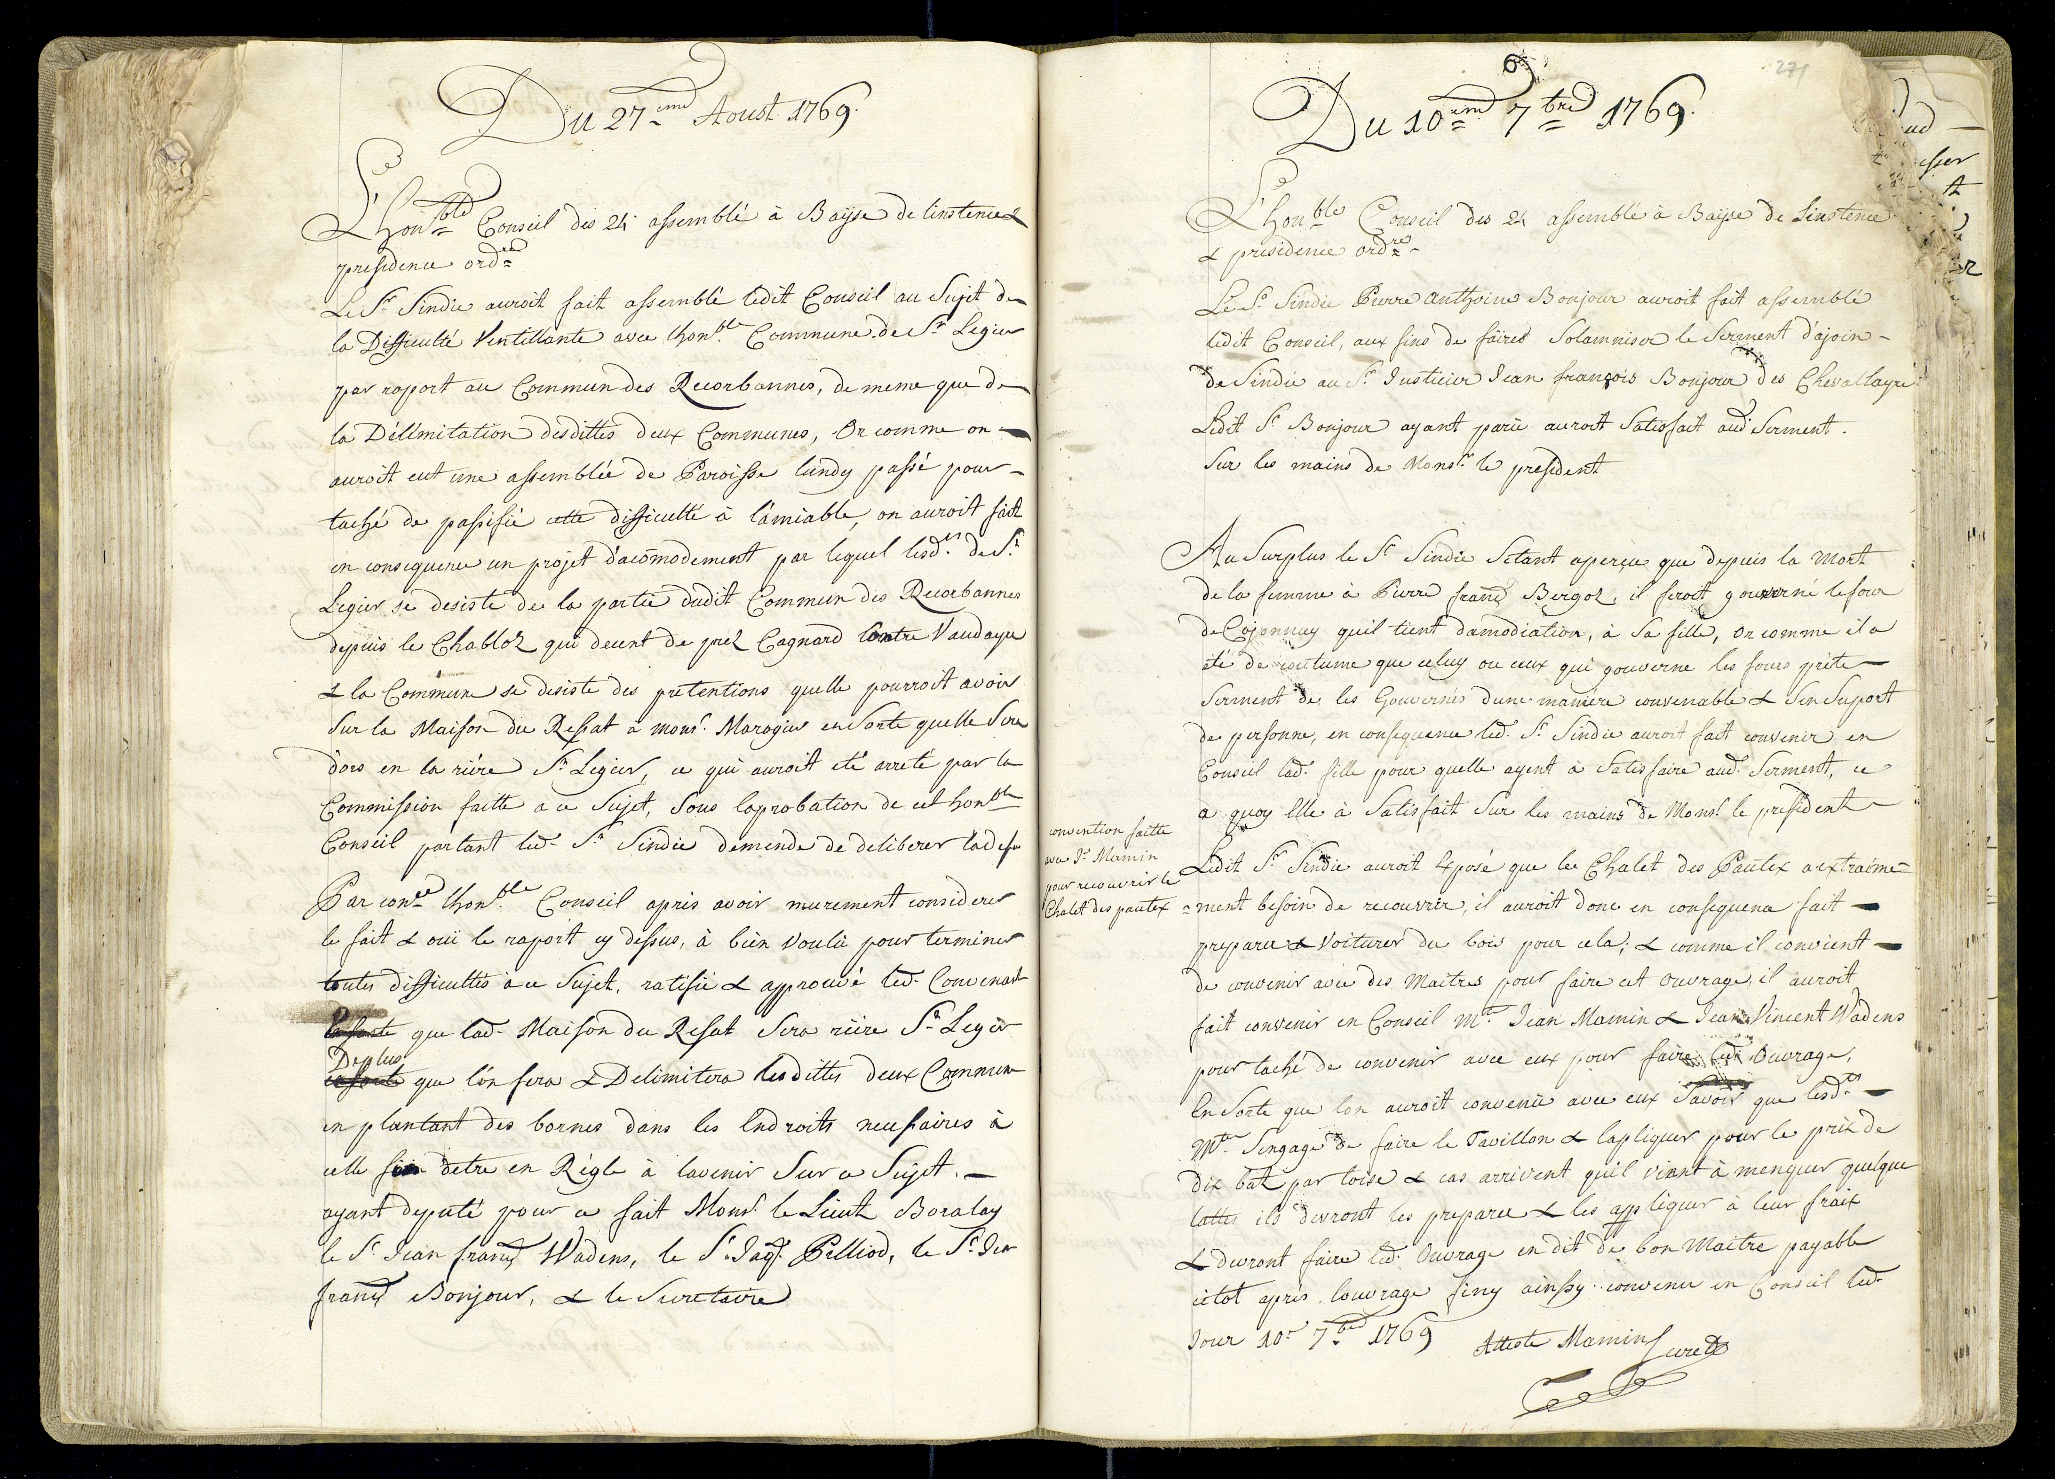 Du 27.eme Aoust 1769.
L'hon.ble Conseil des 24 assemblé à Bayse de linstence &
presidence ord.re
Le Sr. Sindic auroit fait assemblé ledit Conseil au Sujet de
la Difficulté Ventillante avec lhon.ble Commune de St. Legier
par raport au Commun des Recorbannes, de meme que de
la Délimitation desdittes deux Communes, Or comme on
auroit eut une assemblée de Paroisse lundy passé pour
taché de passifié cette difficulté à lámiable, on auroit fait
en consequence un projet dácomodement par lequel lesd.ts de St.
Legier se desiste de la partie dudit Commun des Recorbannes
depuis le Chabloz qui decent de prez Cagnard Contre Vaudayre
& la Commune se desiste des pretentions quelle pourroit avoir
Sur la Maison du Ressat a mons.r Maragier en Sorte quelle Sera
dors en la riére St. Legier, ce qui auroit eté arreté par la
Commission faitte a ce Sujet, Sous laprobation de cet hon.ble
Conseil partant led. Sr. Sindic demende de deliberer ladessu
Par con.ce lhon.ble Conseil apris avoir murement considerer
le fait & oui le raport cy dessus, à bien Voulu pour terminer
toutes difficultés à ce Sujet, ratifié & approuvé led. Convenant
que lad. Maison du Resat Sera riére St. Legier
Deplus
que lón fera & Delimitera lesdittes deux Commune
en plantant des bornes dans les Endroits necessaires à
celle fin detre en Régle à lavenir Sur ce Sujet. —
ayant deputé pour ce fait Mons.r le Lieut. Boralay
le Sr. Jean franç. Wadens, le Sr. Jaq. Pilliod, le Sr. Jean
franç. Bonjour, & le Secretaire
271
Du 10.eme 7.bre 1769.
L'hon.ble Conseil des 24 assemblé à Bayse de Linstence
& presidence ord.re
Le Sr. Sindic Pierre Anthoine Bonjour auroit fait assemblé
ledit Conseil, aux fins de faires Solamniser le Serment d'ajoin-
de Sindic au Sr. Justicier Jean françois Bonjour des Chevallayre
Ledit Sr. Bonjour ayant paru auroit Satisfait aud. Serment.
Sur les mains de Mons.r le president
Au Surplus le Sr. Sindic Sétant aperçu que depuis la Mort
de la femme à Pierre franç. Bergoz, il feroit gouverné le four
de Cojonnay quil tient damodiation, à Sa fille, or comme il a
été de coutume que celuy ou ceux qui gouverne les fours prête
Serment de les Gouvernés dune maniere convenable & Sen Suport
de personne, en consequence led. Sr. Sindic auroit fait convenir en
Conseil lad. fille pour quelle ayent à Satisfaire aud. Serment, ce
a quoy Elle à Satisfait Sur les mains de Mons.r le president
convention faitte
avec Jn. Mamin
pour recouvrir le
Chalet des pautex
Ledit Sr. Sindic auroit Exposé que le Chalet des Pautex a extraime-
-ment besoin de recouvrir, il auroit donc en consequence fait
preparer & Voiturer du bois pour cela; & comme il convient
de convenir avec des Maitres pour faire cet Ouvrage, il auroit
fait convenir en Conseil M.tre Jean Mamin & Jean Vincent Wadens
pour taché de convenir avec eux pour faire led. Ouvrage,
En Sorte que lon auroit convenu avec eux Savoir que lesd.ts
M.tre Sengage de faire le Tavillon & lapliquer pour le prix de
dix batz par toise & cas arrivent quil vient à menquer quelque
lattes ils devront les preparer & les appliquer à leur fraix
& devront faire led. Ouvrage en dit de bon Maitre payable
citot apris louvrage finy ainssy convenu en Conseil led.
Jour 10.e 7.bre 1769 Atteste Mamin Secret.